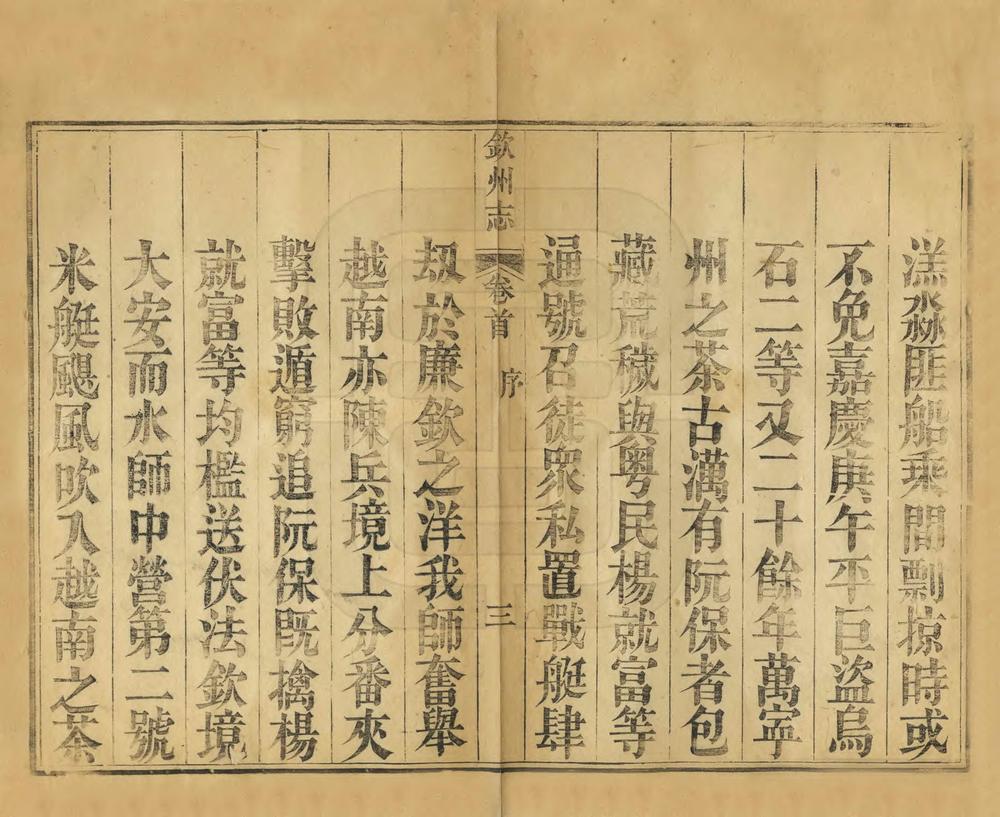 洋淼匪船乘間剽掠時或
不免嘉慶庚午平巨盜烏
石二等又二十餘年萬寜
州之茶古澫有阮保者包
藏荒穢與粤民楊就富等
逼號召徒衆私置戰艇肆
刼於廉欽之洋我師奮舉
越南亦陳兵境上分番夾
擊敗遁窮追阮保既擒楊
就富等均檻送伏法欽境
大安而水師中營第二號
米艇颶風吹入越南之茶
欽州志
卷首
序
三